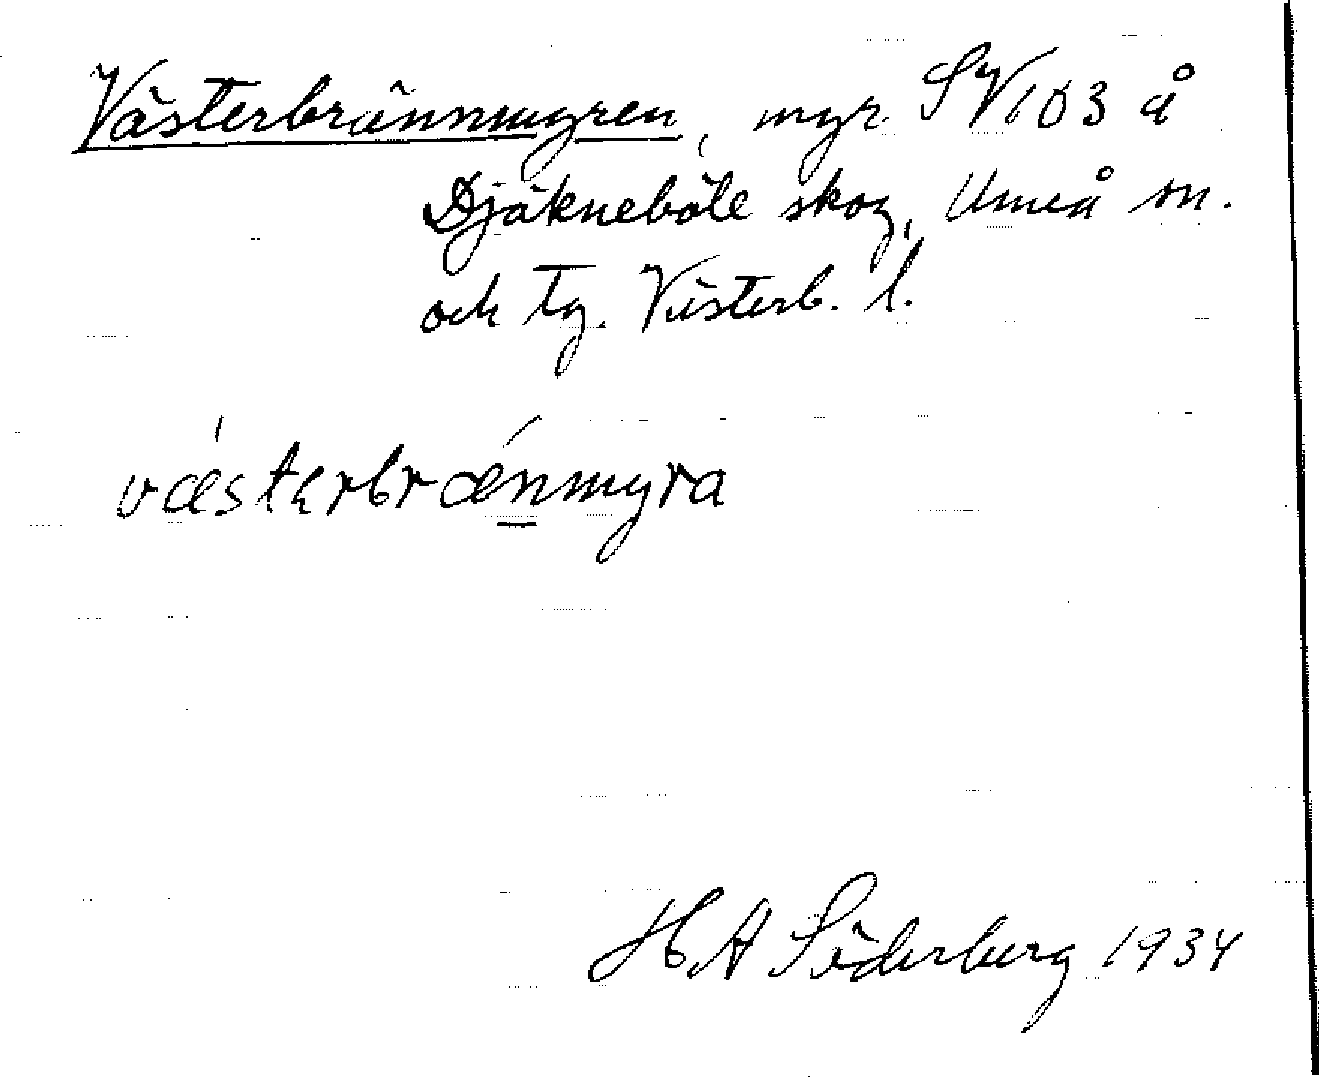 Västerbrännmyren, myr SV103 å
Djäkneböle skog, Umeå sn.
och tg. Västerb. l.
västerbrænmyra
H A Söderberg 1934